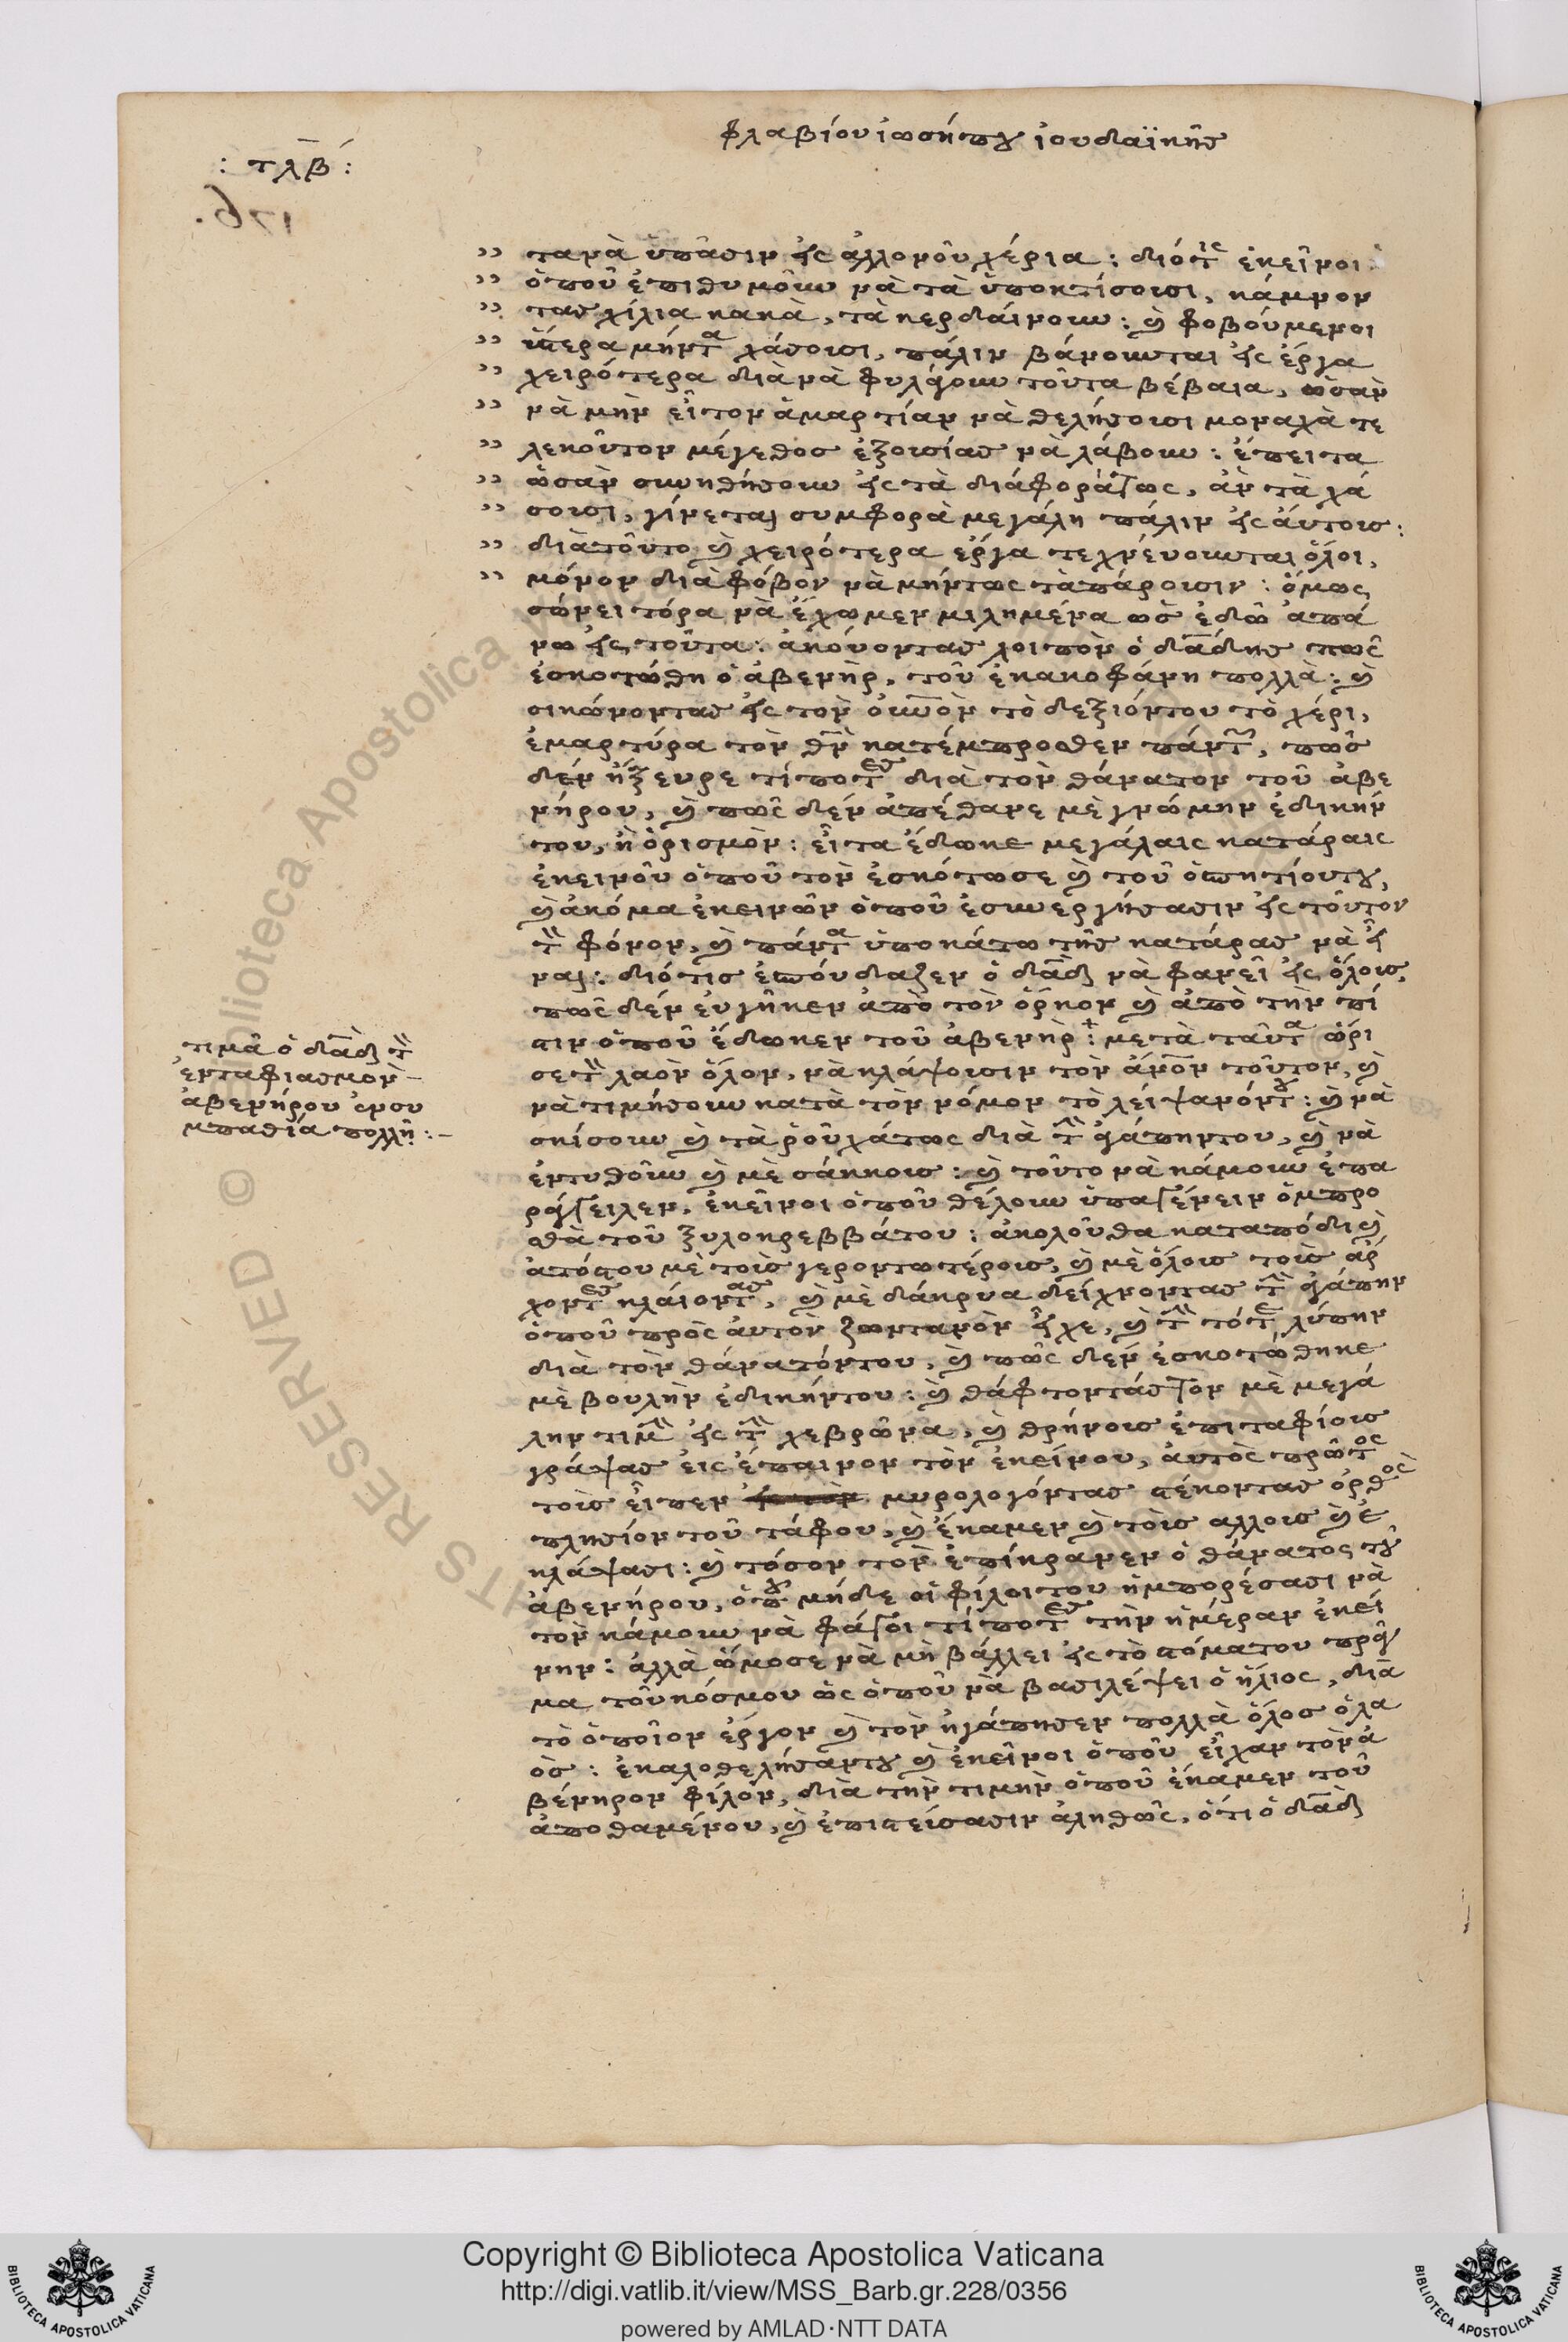 φλαβίου ἰωσήπου ἰουδαϊκῆς
: τλβ :
176.
τανὰ ὑπᾶσιν εἰς ἀλλονοῦ χέρια : διότις ἐκεῖνοι
ὁποῦ ἐπιθυμοῦν νὰ τὰ ὑποκτίσουσι, κάμνον
τας χίλια κακὰ, τὰ κερδαίνουν : καὶ φοβούμενοι
ὕστερα μήντα χάσουσι, πάλιν βάνουνται εἰς ἔργα
χειρότερα διὰ νὰ φυλάγουν τοῦτα βέβαια, ὡσὰν
νὰ μὴν εἶτον ἁμαρτίαν νὰ θελήσουσι μοναχὰ τε
λεκοῦτον μέγεθος ἐξουσίας νὰ λάβουν : ἔπειτα
ὡσὰν συνηθήσουν εἰς τὰ διάφοράτως, ἂν τὰ χά
σουσι, γίνεται συμφορὰ μεγάλη πάλιν εἰς ἀυτους :
διὰ τοῦτο καὶ χειρότερα ἔργα τεχνέυουνται ὅλοι,
μόνον διὰ φόβον νὰ μήντως τὰ πάρουσιν : ὅμως
σώνει τόρα νὰ ἔχωμεν μιλημένα ὣς ἐδῶ ἀπά
νω εἰς τοῦτα : ἀκούοντας λοιπὸν ὁ δαδης πῶς
ἐσκοτώθη ὁ ἀβενὴρ, τοῦ ἐκακοφάνη πολλὰ : καὶ
σικώνοντας εἰς τὸν οὐνὸν τὸ δεξιόντου τὸ χέρι,
ἐμαρτύρα τὸν θν κατέμπροσθεν πάντων, πῶς
δὲν ἤξευρε τίποτες διὰ τὸν θάνατον τοῦ ἀβε
νήρου, καὶ πῶς δὲν ἀπέθανε μὲ γνώμην ἐδικήν
του, ἢ ὁρισμὸν : εἶτα ἔδωκε μεγάλαις κατάραις
ἐκεινοῦ ὁποῦ τὸν ἐσκότωσε καὶ τοῦ ὁσπητίουτου,
καὶ ἀκόμα ἐκεινῶν ὁποῦ ἐσυνεργήσασιν εἰς τοῦτον
τὸν φόνον, καὶ πάντα ὑποκάτω τῆς κατάρας νὰ εἶ
ναι : διότις ἐσπούδαζεν ὁ δαδ νὰ φανεῖ εἰς ὅλους,
πῶς δὲν ἐυγῆκεν ἀπὸ τὸν ὅρκον καὶ ἀπὸ τὴν πί
στιν ὁποῦ ἔδωκεν τοῦ ἀβενὴρ : μετὰ ταῦτα ὥρι
σε τὸν λαὸν ὅλον, νὰ κλάψουσιν τὸν ἄνον τοῦτον, καὶ
νὰ τιμήσουν κατὰ τὸν νόμον τὸ λείψανόντου : καὶ νὰ
σκίσουν καὶ τὰ ῥοῦχάτως διὰ τὴν ἀγάπηντου, καὶ νὰ
ἐντυθοῦν καὶ μὲ σάκκους : καὶ τοῦτο νὰ κάμουν ἐπα
ράγγειλεν, ἐκεῖνοι ὁποῦ θέλουν ὑπαγένειν ὀμπρο
σθὰ τοῦ ξυλοκρεββάτου : ἀκολοῦθα καταπόδι καὶ
ἀτόςτου μὲ τοὺς γεροντωτέρους, καὶ μὲ ὅλους τοὺς ἄρ
χοντες κλάιοντας, καὶ μὲ δάκρυα δείχνοντας τὴν ἀγάπην
ὁποῦ πρὸς ἀυτὸν ζωντανὸν εἶχε, καὶ τὴν τότε λύπην
διὰ τὸν θάνατόντου, καὶ πῶς δὲν ἐσκοτώθηκε
μὲ βουλὴν ἐδικήντου : καὶ θάφτοντάςτον μὲ μεγά
λην τιμὴν εἰς τὴν χεβρῶνα, καὶ θρήνους ἐπιταφίους
γράψας εἰς ἔπαινον τὸν ἐκείνου, ἀυτὸς πρῶτος
τοὺς εἶπεν μυρολογόντας στέκοντας ὀρθὸς
πλησίον τοῦ τάφου, καὶ ἔκαμεν καὶ τοὺς αλλους καὶ ἐ
κλάψασι : καὶ τόσον τὸν ἐπίκρανεν ὁ θάνατος τοῦ
ἀβενήρου, ὁποῦ μήδε οἱ φίλοιτου ἠμπορέσασι νὰ
τὸν κάμουν νὰ φάγοι τίποτες τὴν ἡμέραν ἐκεί
νην : ἀλλὰ ὤμοσε νὰ μὴ βάλλει εἰς τὸ στόματου πράγ
μα τοῦ κόσμου ὡς ὁποῦ νὰ βασιλέψει ὁ ἥλιος, διὰ
τὸ ὁποῖον ἔργον καὶ τὸν ἠγάπησεν πολλὰ ὅλος ὁ λα
ὸς : ἐκαλοθελήσαντου καὶ ἐκεῖνοι ὁποῦ εἶχαν τὸν ἀ
βένηρον φίλον, διὰ τὴν τιμὴν ὁποῦ ἔκαμεν τοῦ
ἀποθαμένου, καὶ ἐπιστείσασιν ἀληθῶς, ὅτι ὁ δαδ
τιμᾶ ὁ δαδ τὸν
ἐνταφιασμὸν
ἀβενήρου ἐν συ
μπαθία πολλῆ :
Copyright © Biblioteca Apostolica Vaticana
http://digi.vatlib.it/view/MSS_Barb.gr.228/0356
powered by AMLAD·NTT DATA
BIBLIOTECA APOSTOLICA VATICANA
BIBLIOTECA APOSTOLICA VATICANA